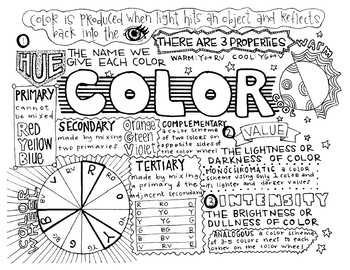 COLOR IS PRODUCED WHEN light hits AN object and Reflects
back into the
THERE ARE 3 PROPERTIES
1
HUE
THE NAME WE
GIVE EACH COLOR
WARM: Y O R RV COOL: Y G B V
WARM
COOL
COLOR
PRIMARY
cannot
be mixed
Red
Yellow
Blue
SECONDARY
made by mixing
two primaries
Orange
Green
Violet
COMPLEMENTARY
a color scheme
of two colors on
opposite sides of
the color wheel
2
VALUE
THE LIGHTNESS OR
DARKNESS OF COLOR
MONOCHROMATIC a color
scheme using only 1 color and
its lighter and darker values
TERTIARY
made by mixing
a primary & the
adjacent secondary
R RO O
O YO Y
Y YG G
G BG B
B BV V
V RV R
COLOR
WHEEL
3
INTENSITY
THE BRIGHTNESS OR
DULLNESS OF COLOR
ANALOGOUS a color scheme
of 3-5 colors next to each
other on the color wheel